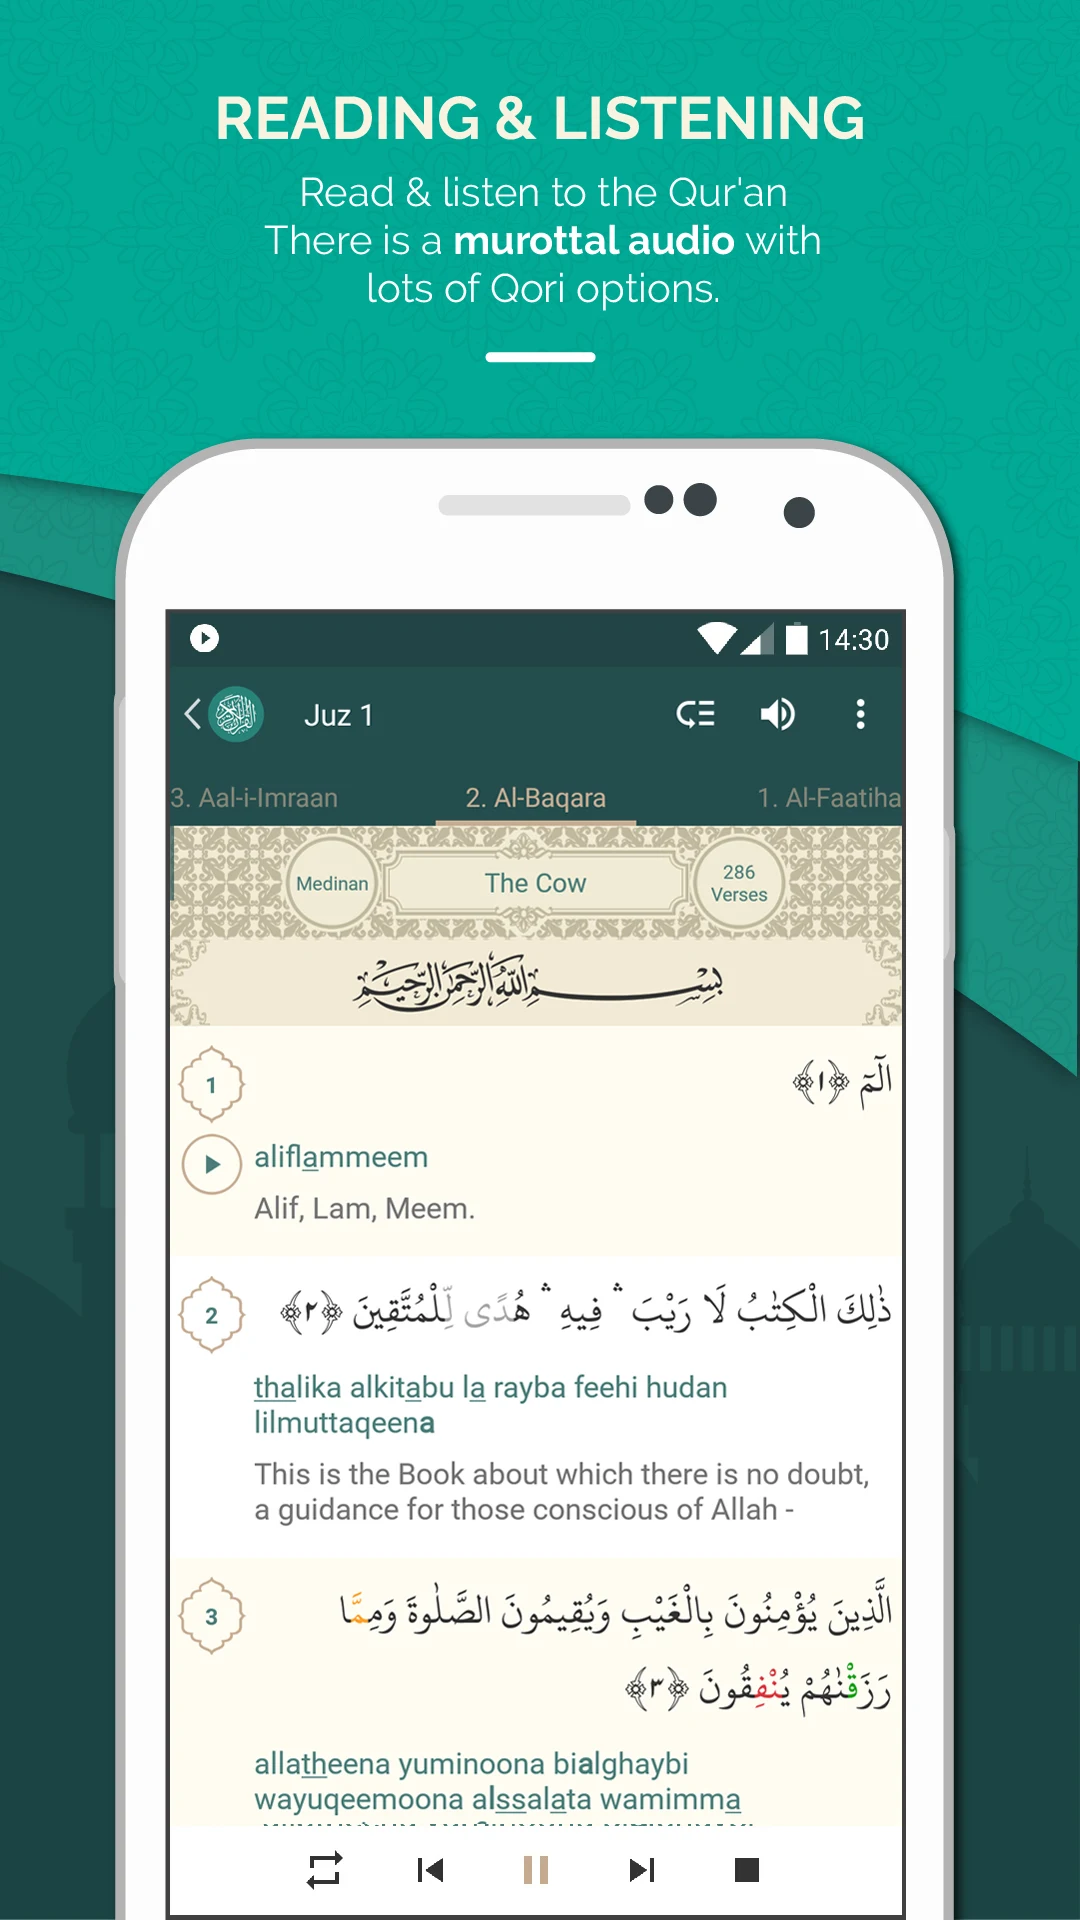 READING & LISTENING
Read & listen to the Qur'an
There is a murottal audio with
lots of Qori options.
14:30
Juz 1
3. Aal-i-Imraan
2. Al-Baqara
1. Al-Faatiha
Medinan
The Cow
286
Verses
بِسْمِ اللَّهِ الرَّحْمَٰنِ الرَّحِيمِ
1
الٓمٓ ﴿١﴾
aliflammeem
Alif, Lam, Meem.
2
ذٰلِكَ الْكِتٰبُ لَا رَيْبَ ۛ فِيهِ ۛ هُدًى لِّلْمُتَّقِينَ ﴿٢﴾
thalika alkitabu la rayba feehi hudan
lilmuttaqeena
This is the Book about which there is no doubt,
a guidance for those conscious of Allah -
3
الَّذِينَ يُؤْمِنُونَ بِالْغَيْبِ وَيُقِيمُونَ الصَّلٰوةَ وَمِمَّا
رَزَقْنٰهُمْ يُنْفِقُونَ ﴿٣﴾
allatheena yuminoona bialghaybi
wayuqeemoona alssalata wamimma